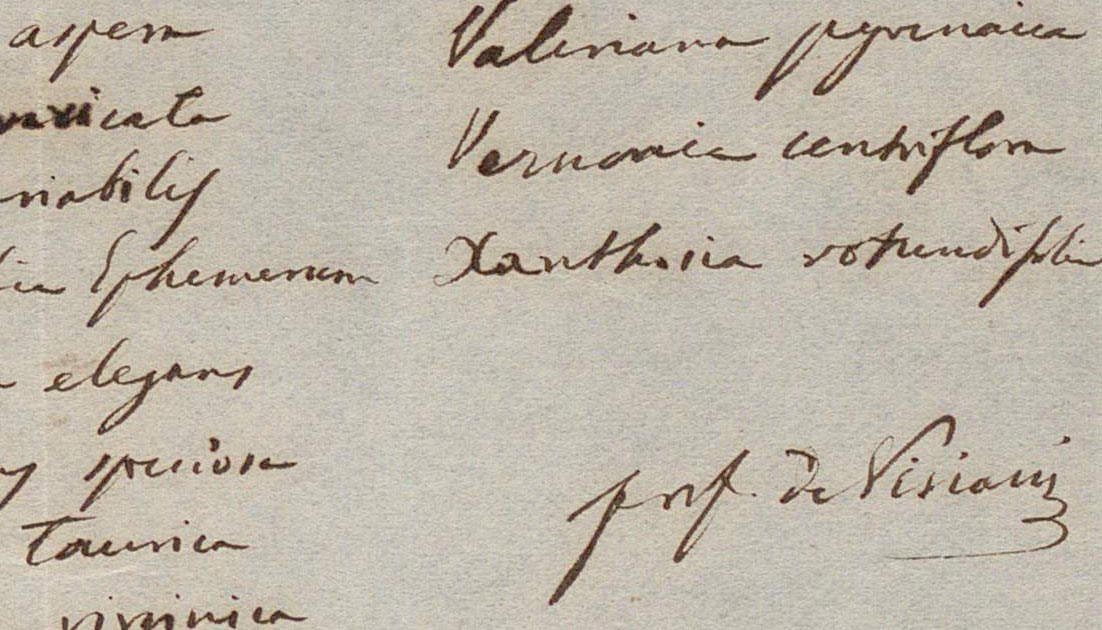 aspera
muricata
riabilis
Ephemerum
elegans
speciosa
taurica
virginica
Valeriana pyrenaica
Vernonia centriflora
Xanthosia rotundifolia
prof. de Visiani